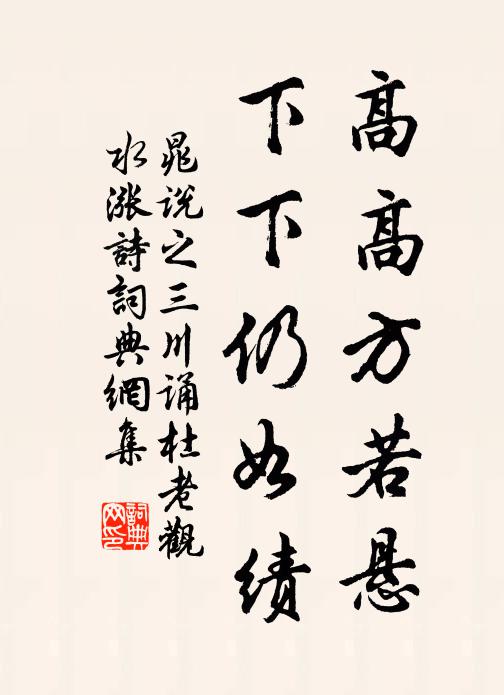 高高方若悬
下下仍如绩
晁说之三川诵杜老觀
水漲詩詞典網集
詞典
网印